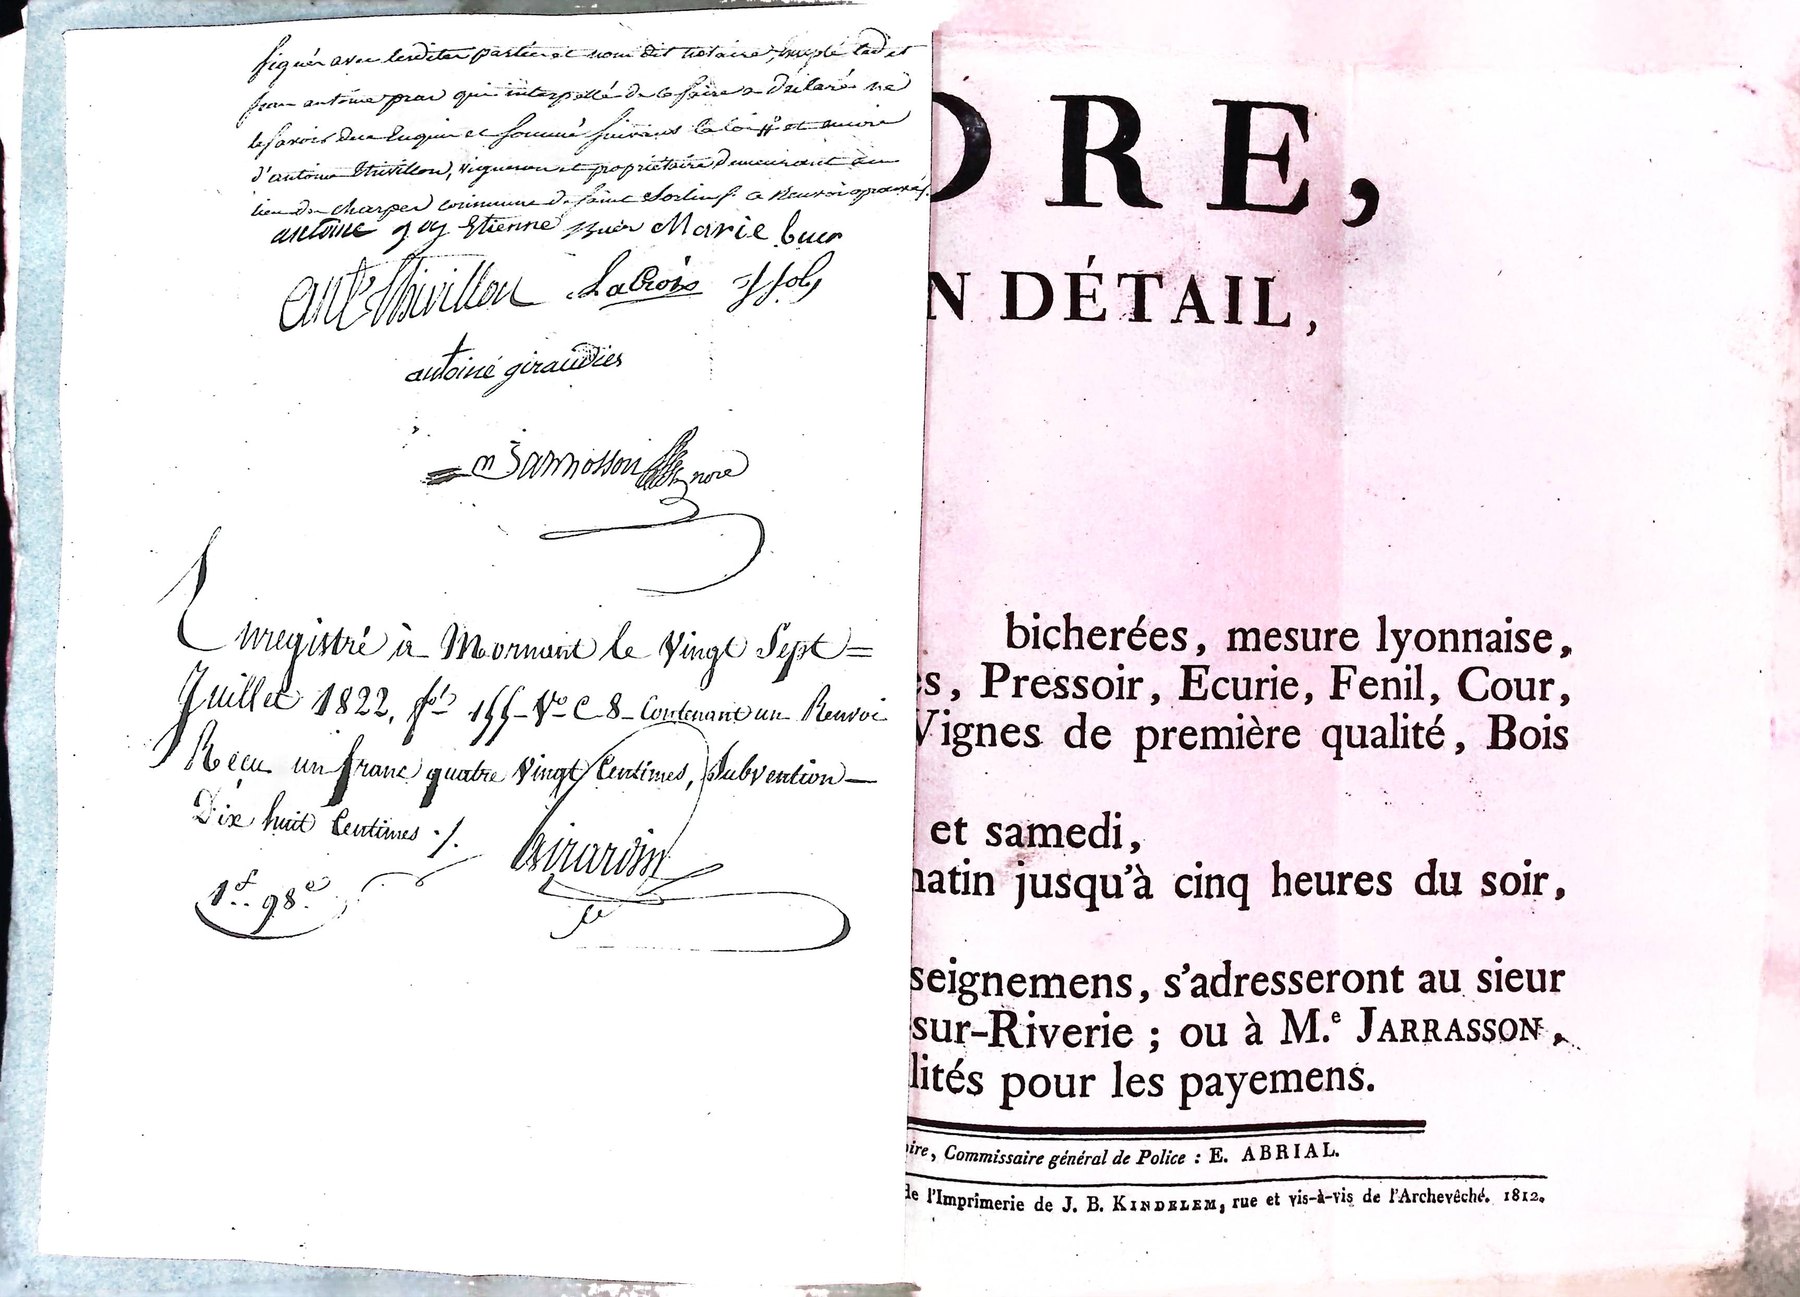 signér avec lesdites parties et nous dit notaire, excepté ledit
jean antoine pras qui interpellé de le faire a déclaré ne
le savoir de ce Enquis et sommé suivant la loi et encore
d'antoine thivillon, vigneron et propriétaire demeurant au
lieu de charpes commune de saint Sorlin ce Renvoi aprouvés
antoine goy Etienne Buer Marie buer
ant.e thivillon LaCroix
antoine giraudier
Enregistré à Mornant le vingt Sept =
Juillet 1822, f.o 155 V.o C 8 Contenant un Renvoi
Recu un franc quatre vingt Centimes, Subvention
Dix huit Centimes ./.
Girardin
1.f 98.c
DRE,
N DÉTAIL,
bicherées, mesure lyonnaise,
es, Pressoir, Ecurie, Fenil, Cour,
Vignes de première qualité, Bois
et samedi,
natin jusqu'à cinq heures du soir,
seignemens, s'adresseront au sieur
sur-Riverie ; ou à M.e JARRASSON,
lités pour les payemens.
ire, Commissaire général de Police : E. ABRIAL.
de l'Imprimerie de J. B. KINDELEM, rue et vis-à-vis de l'Archevêché. 1812.